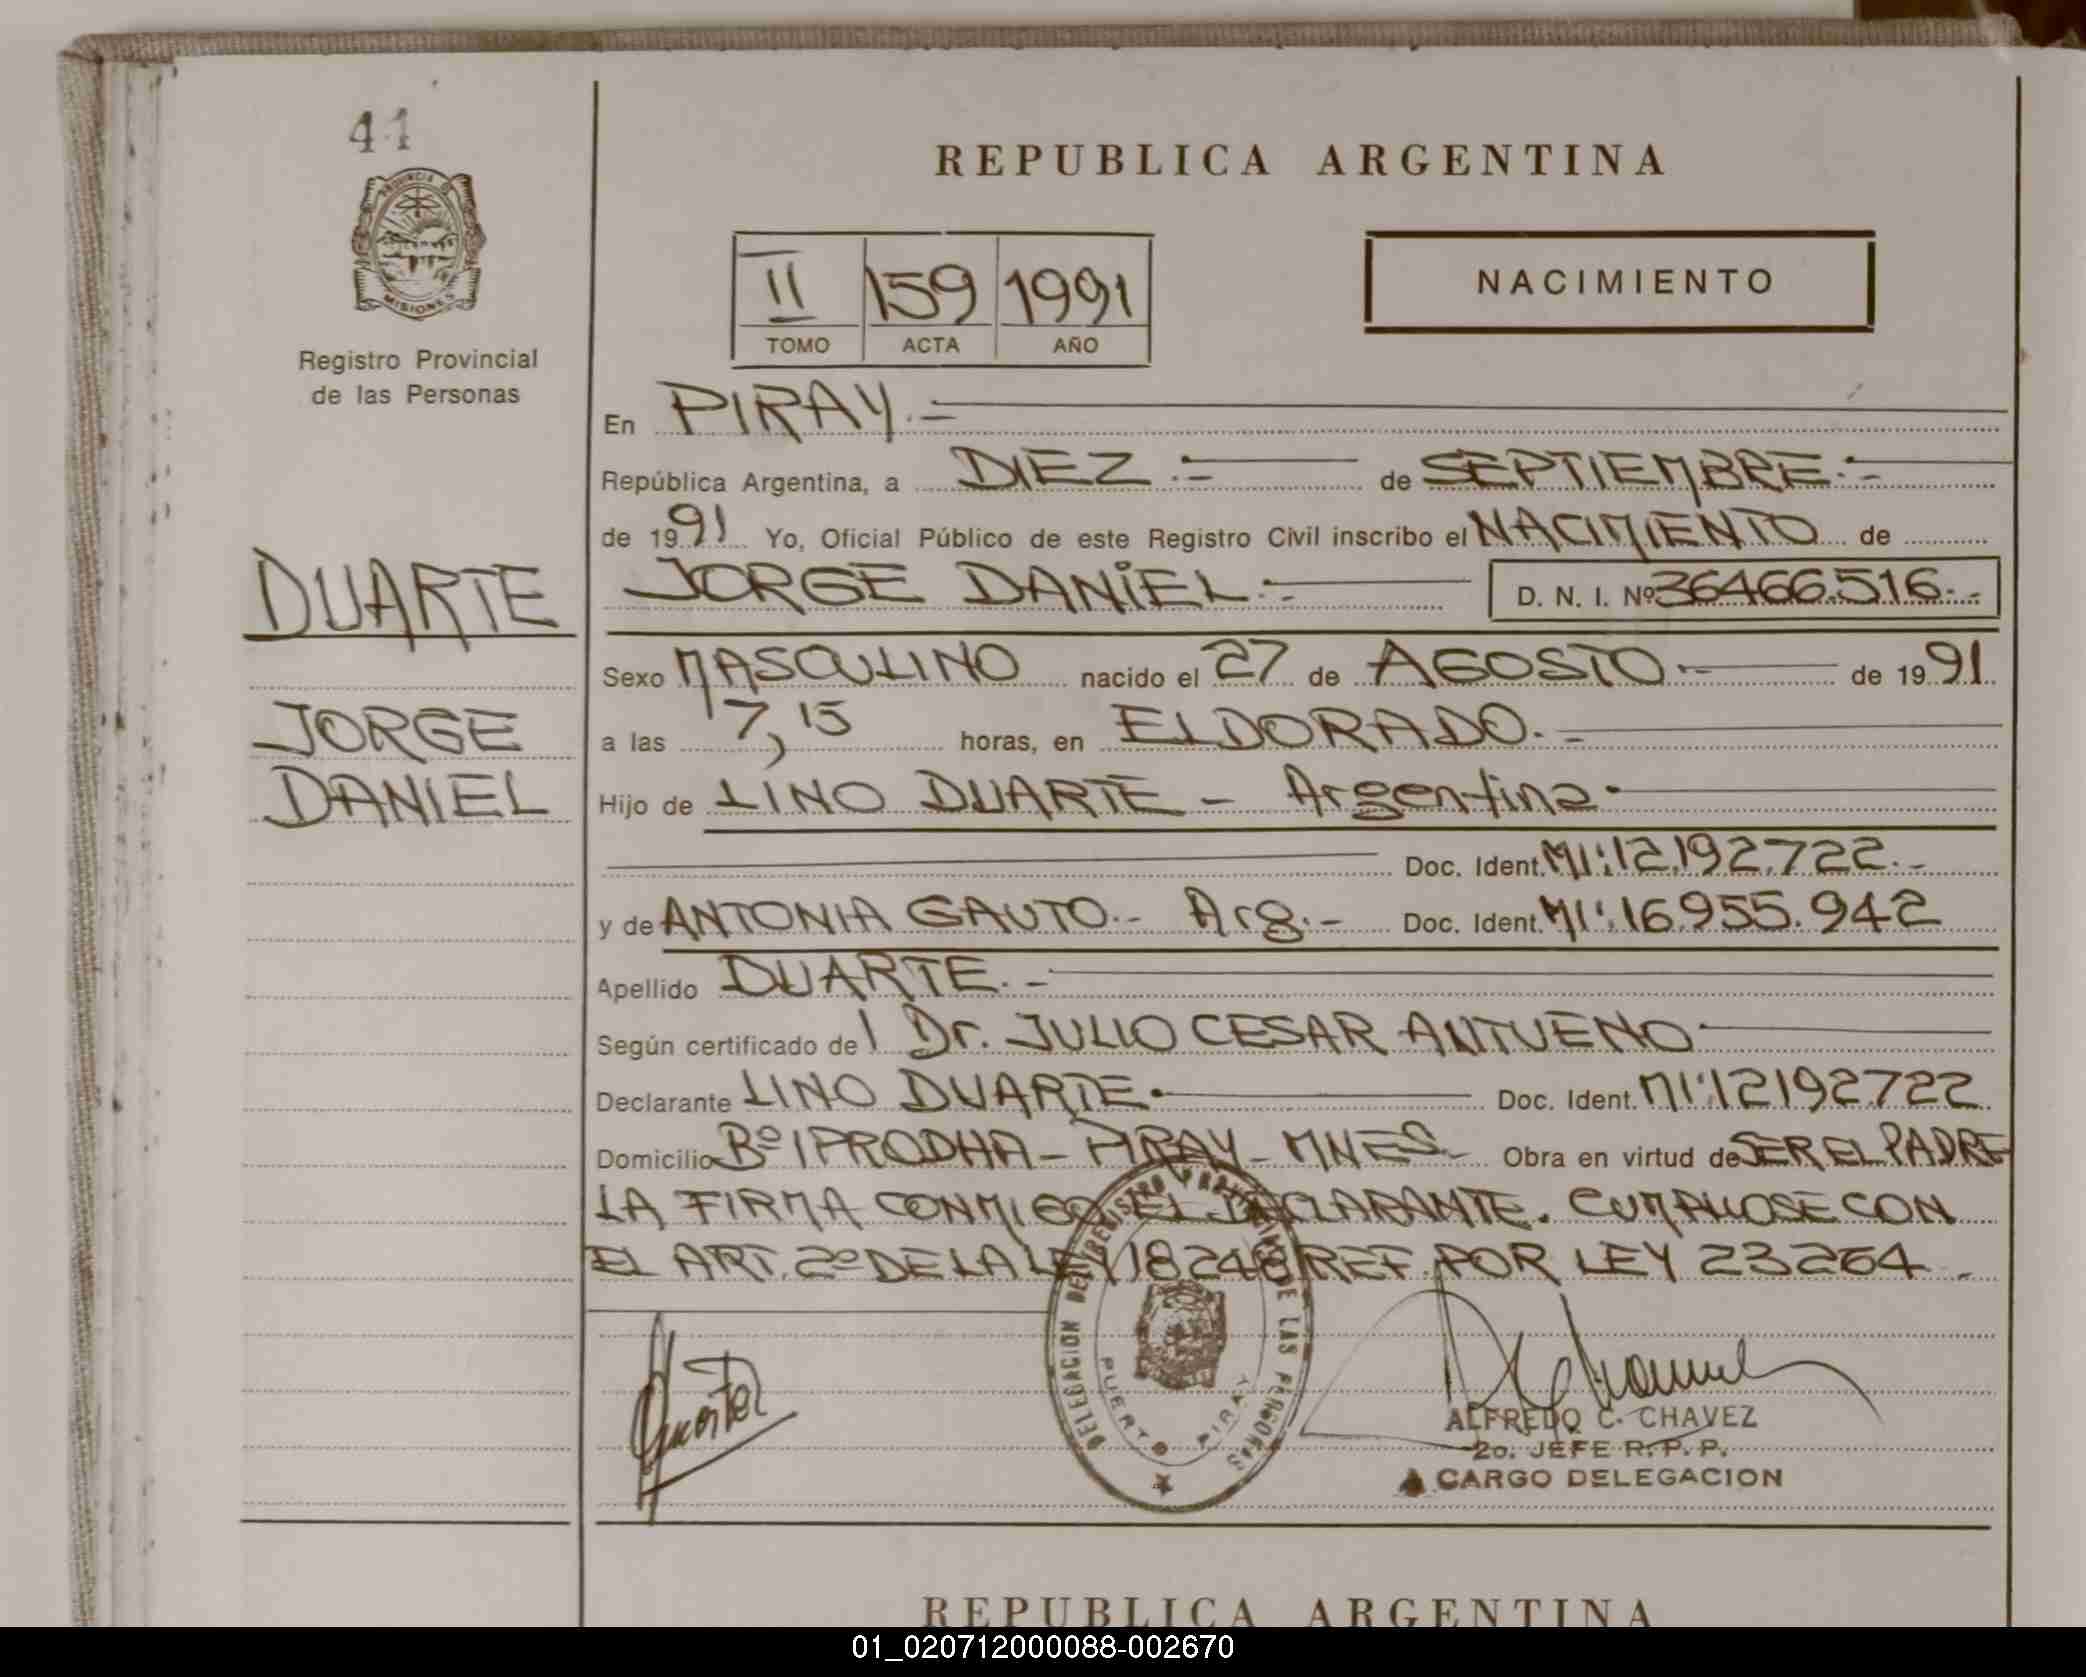 41
PROVINCIA DE
MISIONES
Registro Provincial
de las Personas
DUARTE
JORGE
DANIEL
REPUBLICA ARGENTINA
II 159 1991
TOMO ACTA AÑO
NACIMIENTO
En PIRAY.-
República Argentina, a DIEZ.- de SEPTIEMBRE.-
de 1991 Yo, Oficial Público de este Registro Civil inscribo el NACIMIENTO de
JORGE DANIEL.- D. N. I. Nº 36466.516.-
Sexo MASCULINO nacido el 27 de AGOSTO.- de 1991
a las 17,15 horas, en ELDORADO.-
Hijo de LINO DUARTE - Argentina.-
Doc. Ident. MI:12.192.722.-
y de ANTONIA GAUTO.- Arg.- Doc. Ident. MI:16.955.942
Apellido DUARTE.-
Según certificado del Dr. JULIO CESAR ANTUENO
Declarante LINO DUARTE. Doc. Ident. MI:12192722
Domicilio Bº IPRODHA - PIRAY - MNES.- Obra en virtud de SER EL PADRE
LA FIRMA CONMIGO EL DECLARANTE. CUMPLIOSE CON
EL ART. 2º DE LA LEY 18248 REF. POR LEY 23264 -
DELEGACION DEL REGISTRO PROVINCIAL DE LAS PERSONAS
PUERTO PIRAY
ALFREDO C. CHAVEZ
2o. JEFE R. P. P.
A CARGO DELEGACION
REPUBLICA ARGENTINA
01_020712000088-002670